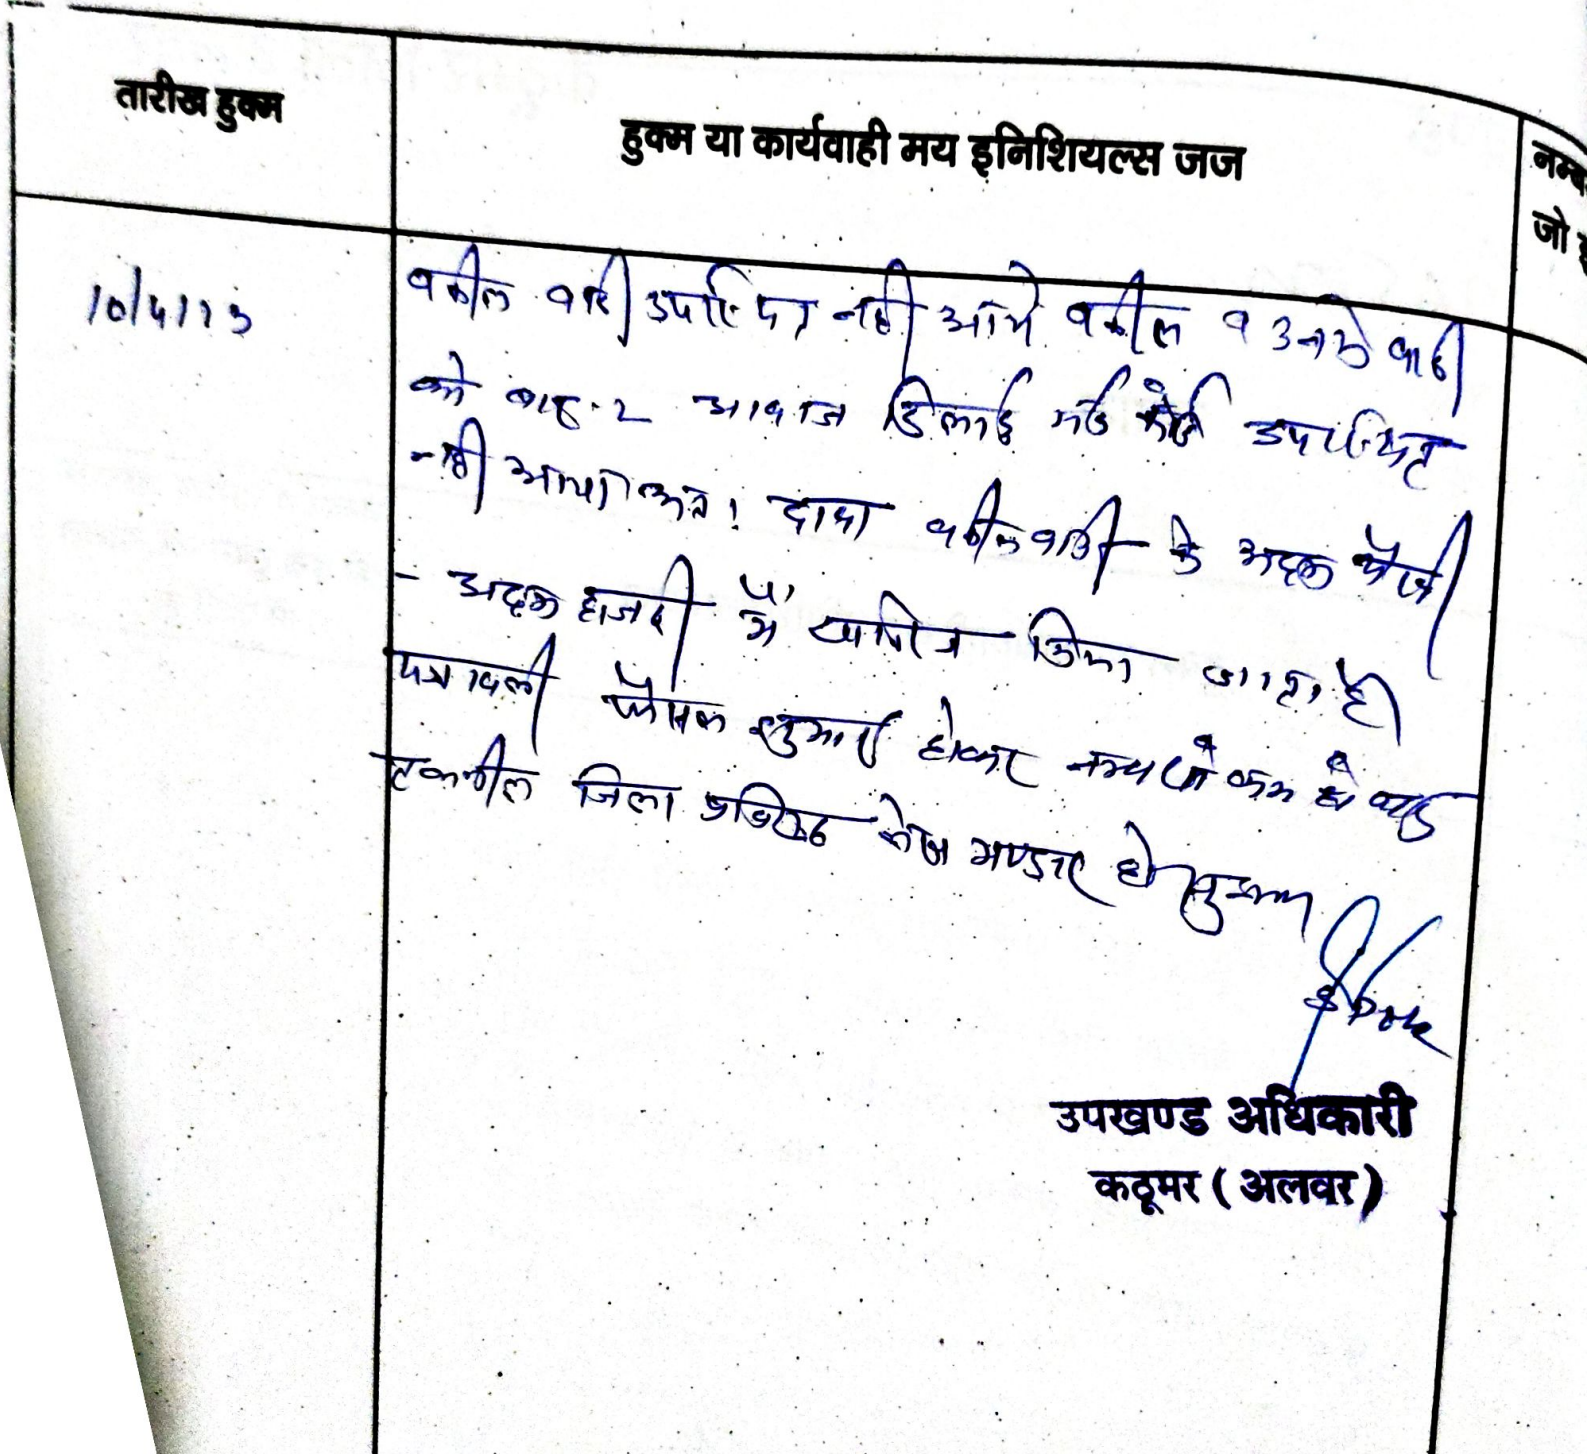 तारीख हुक्म
हुक्म या कार्यवाही मय इनिशियल्स जज
जो
10/4/13
वकील वादी उपस्थित नही आये वकील व उनके वादी
को बार-2 आवाज दिलाई गई कोई उपस्थित
नही आया अतः दावा वकील वादी के अदम पैरवी
- अदम हाजरी में खारिज किया जाता है
पत्रावली फैसल शुमार होकर नम्बर से कम हो बाद
तकमील जिला अभिलेख लेखा भण्डार हो
उपखण्ड अधिकारी
कठूमर ( अलवर )